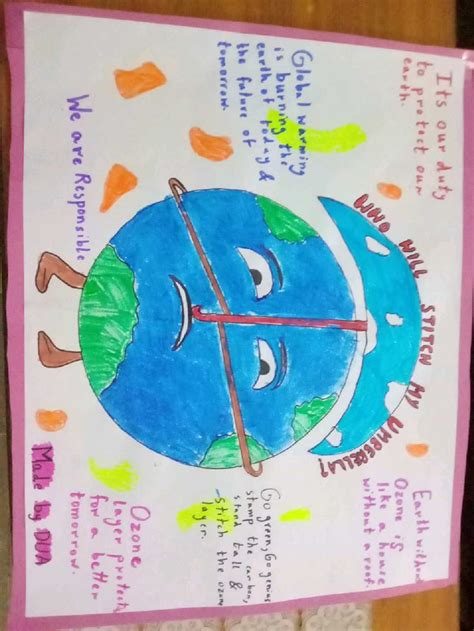 WHO WILL STITCH MY UMBRELLA?
It's our duty
to protect our
earth.
Global warming
is burning the
earth of today &
the future of
tomorrow.
We are Responsible
Earth without
Ozone is
like a house
without a roof.
Go green, Go genius
stamp the carbon,
stand tall &
stitch the ozone
layer.
Ozone
layer protects
for a better
tomorrow.
Made by DUA